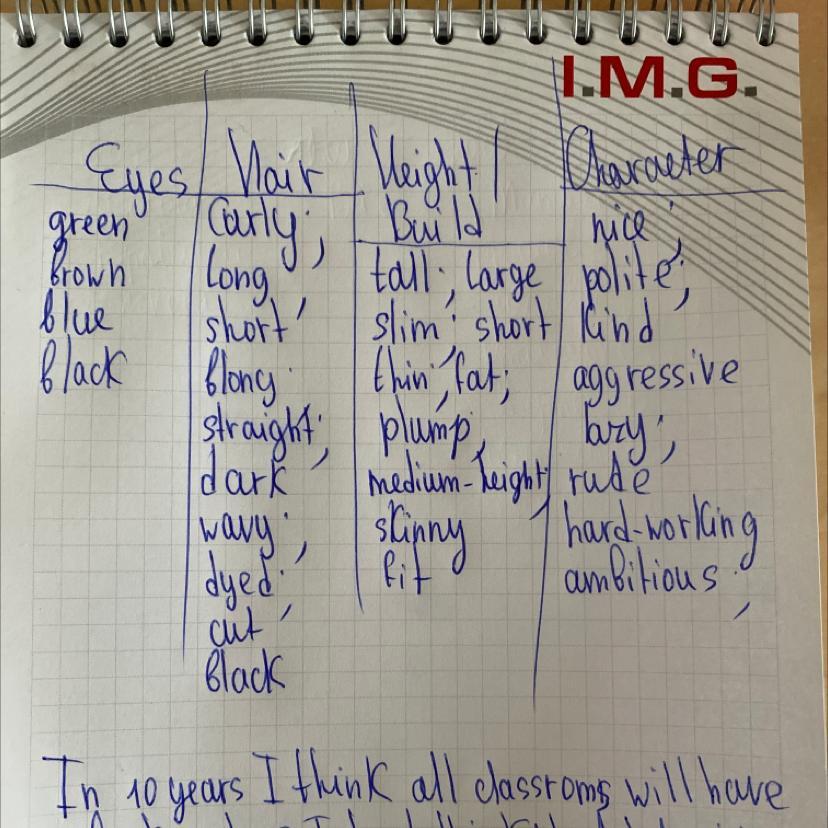 I.M.G.
Eyes
green
brown
blue
black
Hair
Curly;
long
short
blong
straight;
dark
wavy;
dyed
cut
black
Height/
Build
tall; large
slim; short
thin; fat;
plump,
medium-height
skinny
fit
Character
nice;
polite;
kind
aggressive
lazy;
rude
hard-working
ambitious
In 10 years I think all classroms will have